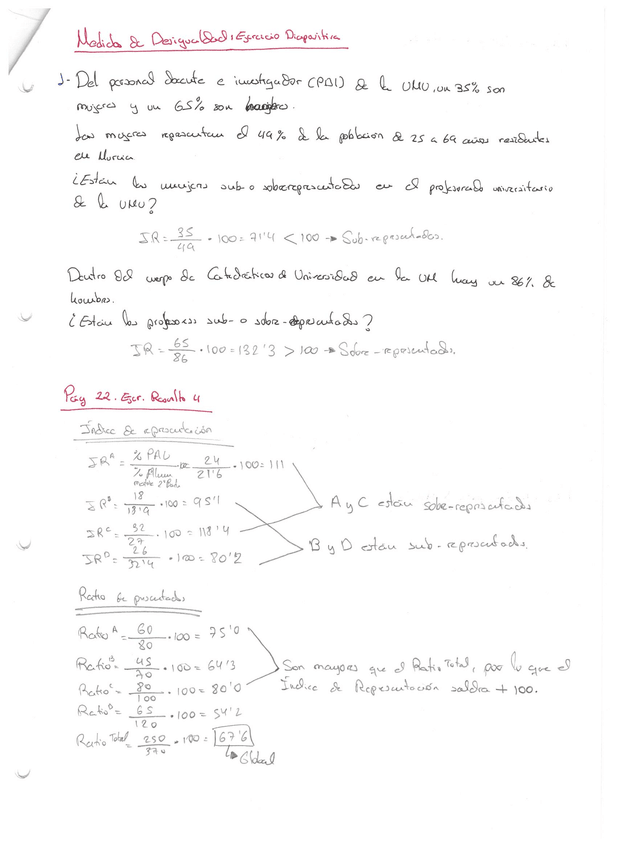 Medidas de Desigualdad: Ejercicio Diapositiva
1- Del personal docente e investigador (PDI) de la UMU, un 35% son
mujeres y un 65% son
Las mujeres representan el 49% de la población de 25 a 69 años residentes
en Murcia
¿Están las mujeres sub- o sobrerepresentadas en el profesorado universitario
de la UMU?
IR = 35/49 · 100 = 71'4 < 100 → Sub-representadas.
Dentro del cuerpo de Catedráticos de Universidad en la UM hay un 86% de
hombres.
¿Están los profesores sub- o sobre-representados?
IR = 65/86 · 100 = 132'3 > 100 → Sobre-representados.
Pág 22. Ejer. Resuelto 4
Índice de representación
IR^A = % PAU / % Alum matric 2º Bach = 24/21'6 · 100 = 111
IR^B = 18/18'9 · 100 = 95'1
A y C están sobre-representados
IR^C = 32/27 · 100 = 118'4
B y D están sub-representados.
IR^D = 26/32'4 · 100 = 80'2
Ratio de presentados
Ratio^A = 60/80 · 100 = 75'0
Ratio^B = 45/70 · 100 = 64'3
Son mayores que el Ratio Total, por lo que el
Ratio^C = 80/100 · 100 = 80'0
Índice de Representación saldra + 100.
Ratio^D = 65/120 · 100 = 54'2
Ratio^Total = 250/370 · 100 = 67'6
↳ Global